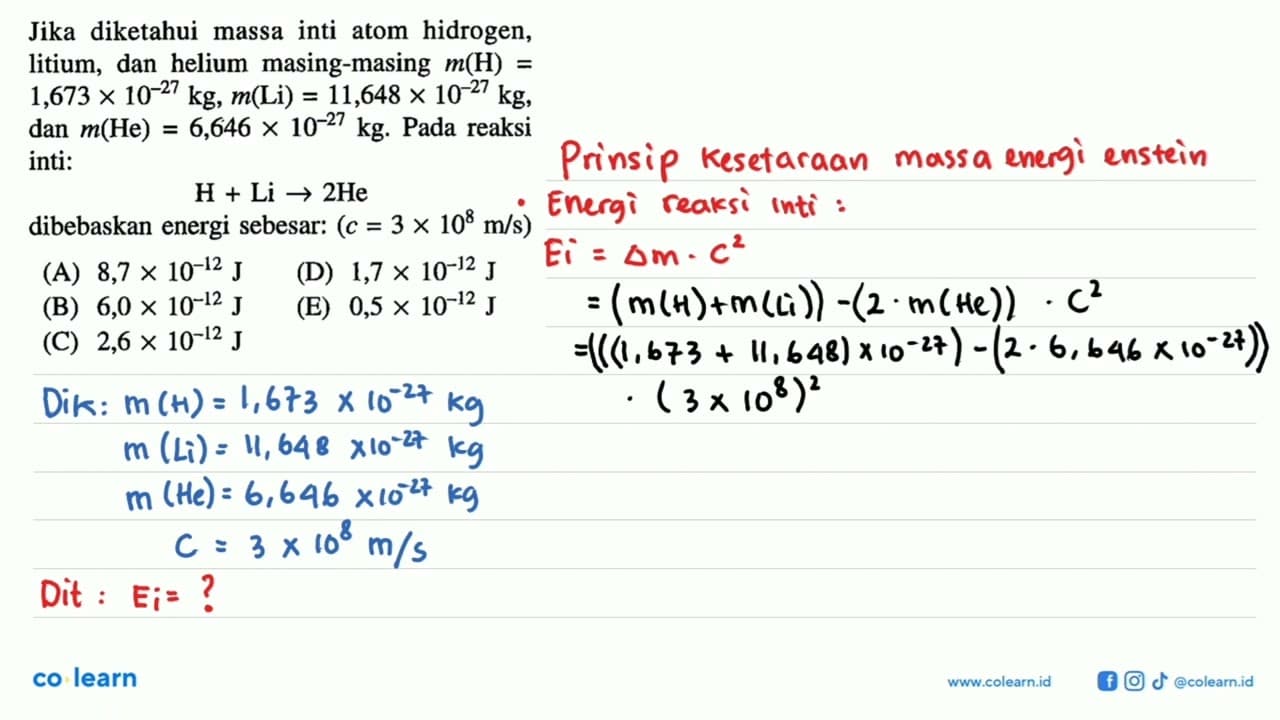 Jika diketahui massa inti atom hidrogen,
litium, dan helium masing-masing m(H) =
1,673 × 10⁻²⁷ kg, m(Li) = 11,648 × 10⁻²⁷ kg,
dan m(He) = 6,646 × 10⁻²⁷ kg. Pada reaksi
inti:
H + Li → 2He
dibebaskan energi sebesar: (c = 3 × 10⁸ m/s)
(A) 8,7 × 10⁻¹² J (D) 1,7 × 10⁻¹² J
(B) 6,0 × 10⁻¹² J (E) 0,5 × 10⁻¹² J
(C) 2,6 × 10⁻¹² J
Dik: m(H) = 1,673 × 10⁻²⁷ kg
m(Li) = 11,648 × 10⁻²⁷ kg
m(He) = 6,646 × 10⁻²⁷ kg
C = 3 × 10⁸ m/s
Dit : Ei = ?
Prinsip kesetaraan massa energi enstein
• Energi reaksi inti :
Ei = Δm · C²
= (m(H)+m(Li)) - (2 · m(He)) · C²
= (((1,673 + 11,648) × 10⁻²⁷) - (2 · 6,646 × 10⁻²⁷))
· (3 × 10⁸)²
co learn
www.colearn.id
@colearn.id